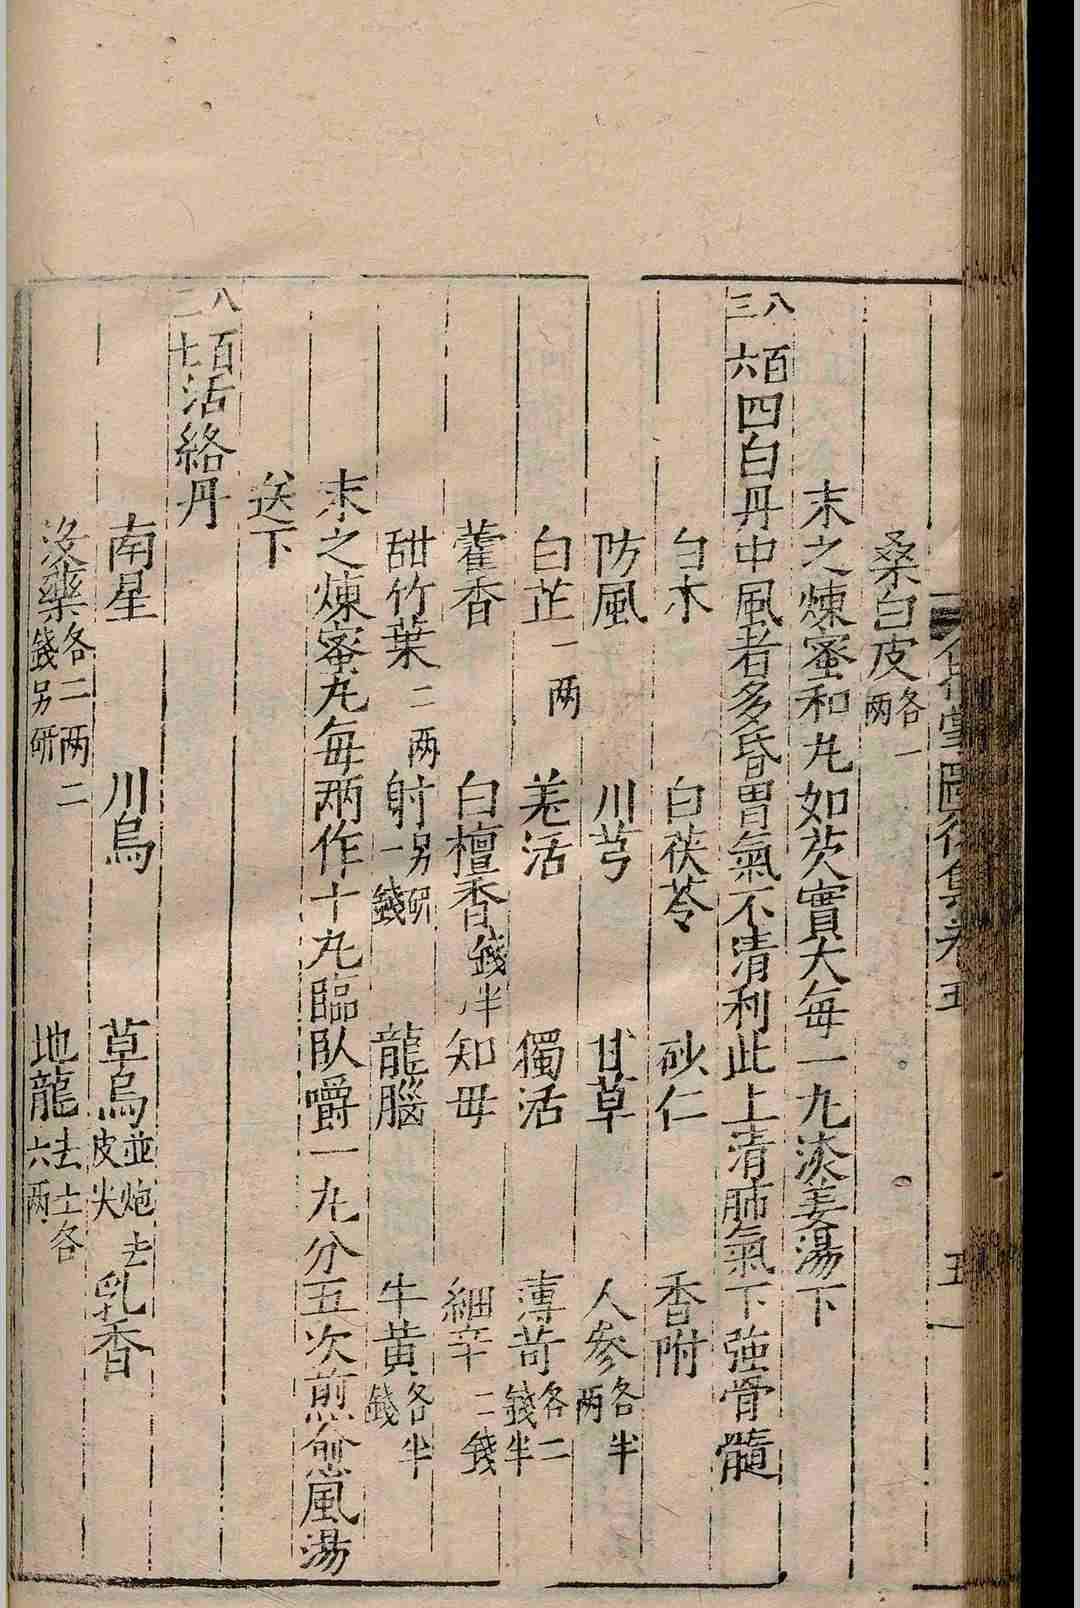 桑白皮各一两
末之煉蜜和丸如芡實大每一九淡姜湯下
八百三六四白丹中風者多昏冒氣不清利此上清肺氣下強骨髓
白朮 白茯苓 砂仁 香附
防風 川芎 甘草 人參各半两
白芷一两 羌活 獨活 薄苛各二錢半
藿香 白檀香錢半 知母 細辛二錢
甜竹葉二两 射另研一錢 龍腦 牛黄各半錢
末之煉蜜丸每两作十丸臨臥嚼一九分五次煎愈風湯
送下
八百二七活絡丹
南星 川烏 草烏並炮去皮尖 乳香
没藥各二两二錢另研 地龍去土各六两